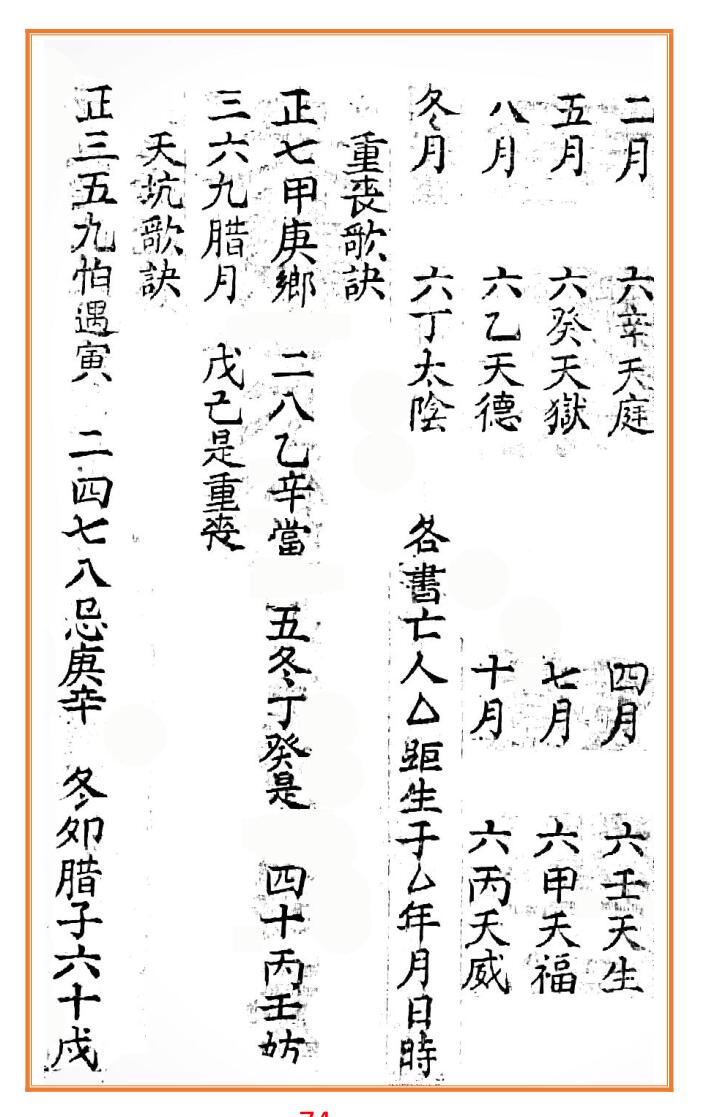 二月 六辛天庭 四月 六壬天生
五月 六癸天獄 七月 六甲天福
八月 六乙天德 十月 六丙天威
冬月 六丁太陰 各書亡人厶距生于厶年月日時
重喪歌訣
正七甲庚鄉 二八乙辛當 五冬丁癸是 四十丙壬妨
三六九腊月 戊己是重喪
天坑歌訣
正三五九怕遇寅 二四七八忌庚辛 冬夘腊子六十戍
74